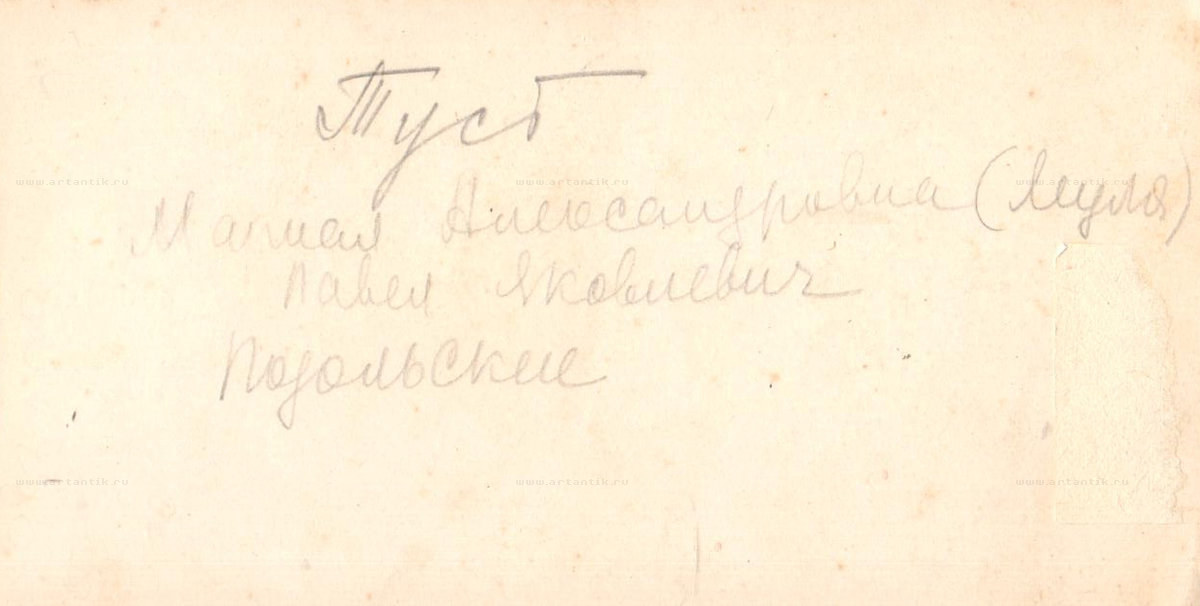 Туст
www.artantik.ru www.artantik.ru www.artantik.ru
Александровна
Павел Яковлевич
Подольские
www.artantik.ru www.artantik.ru www.artantik.ru